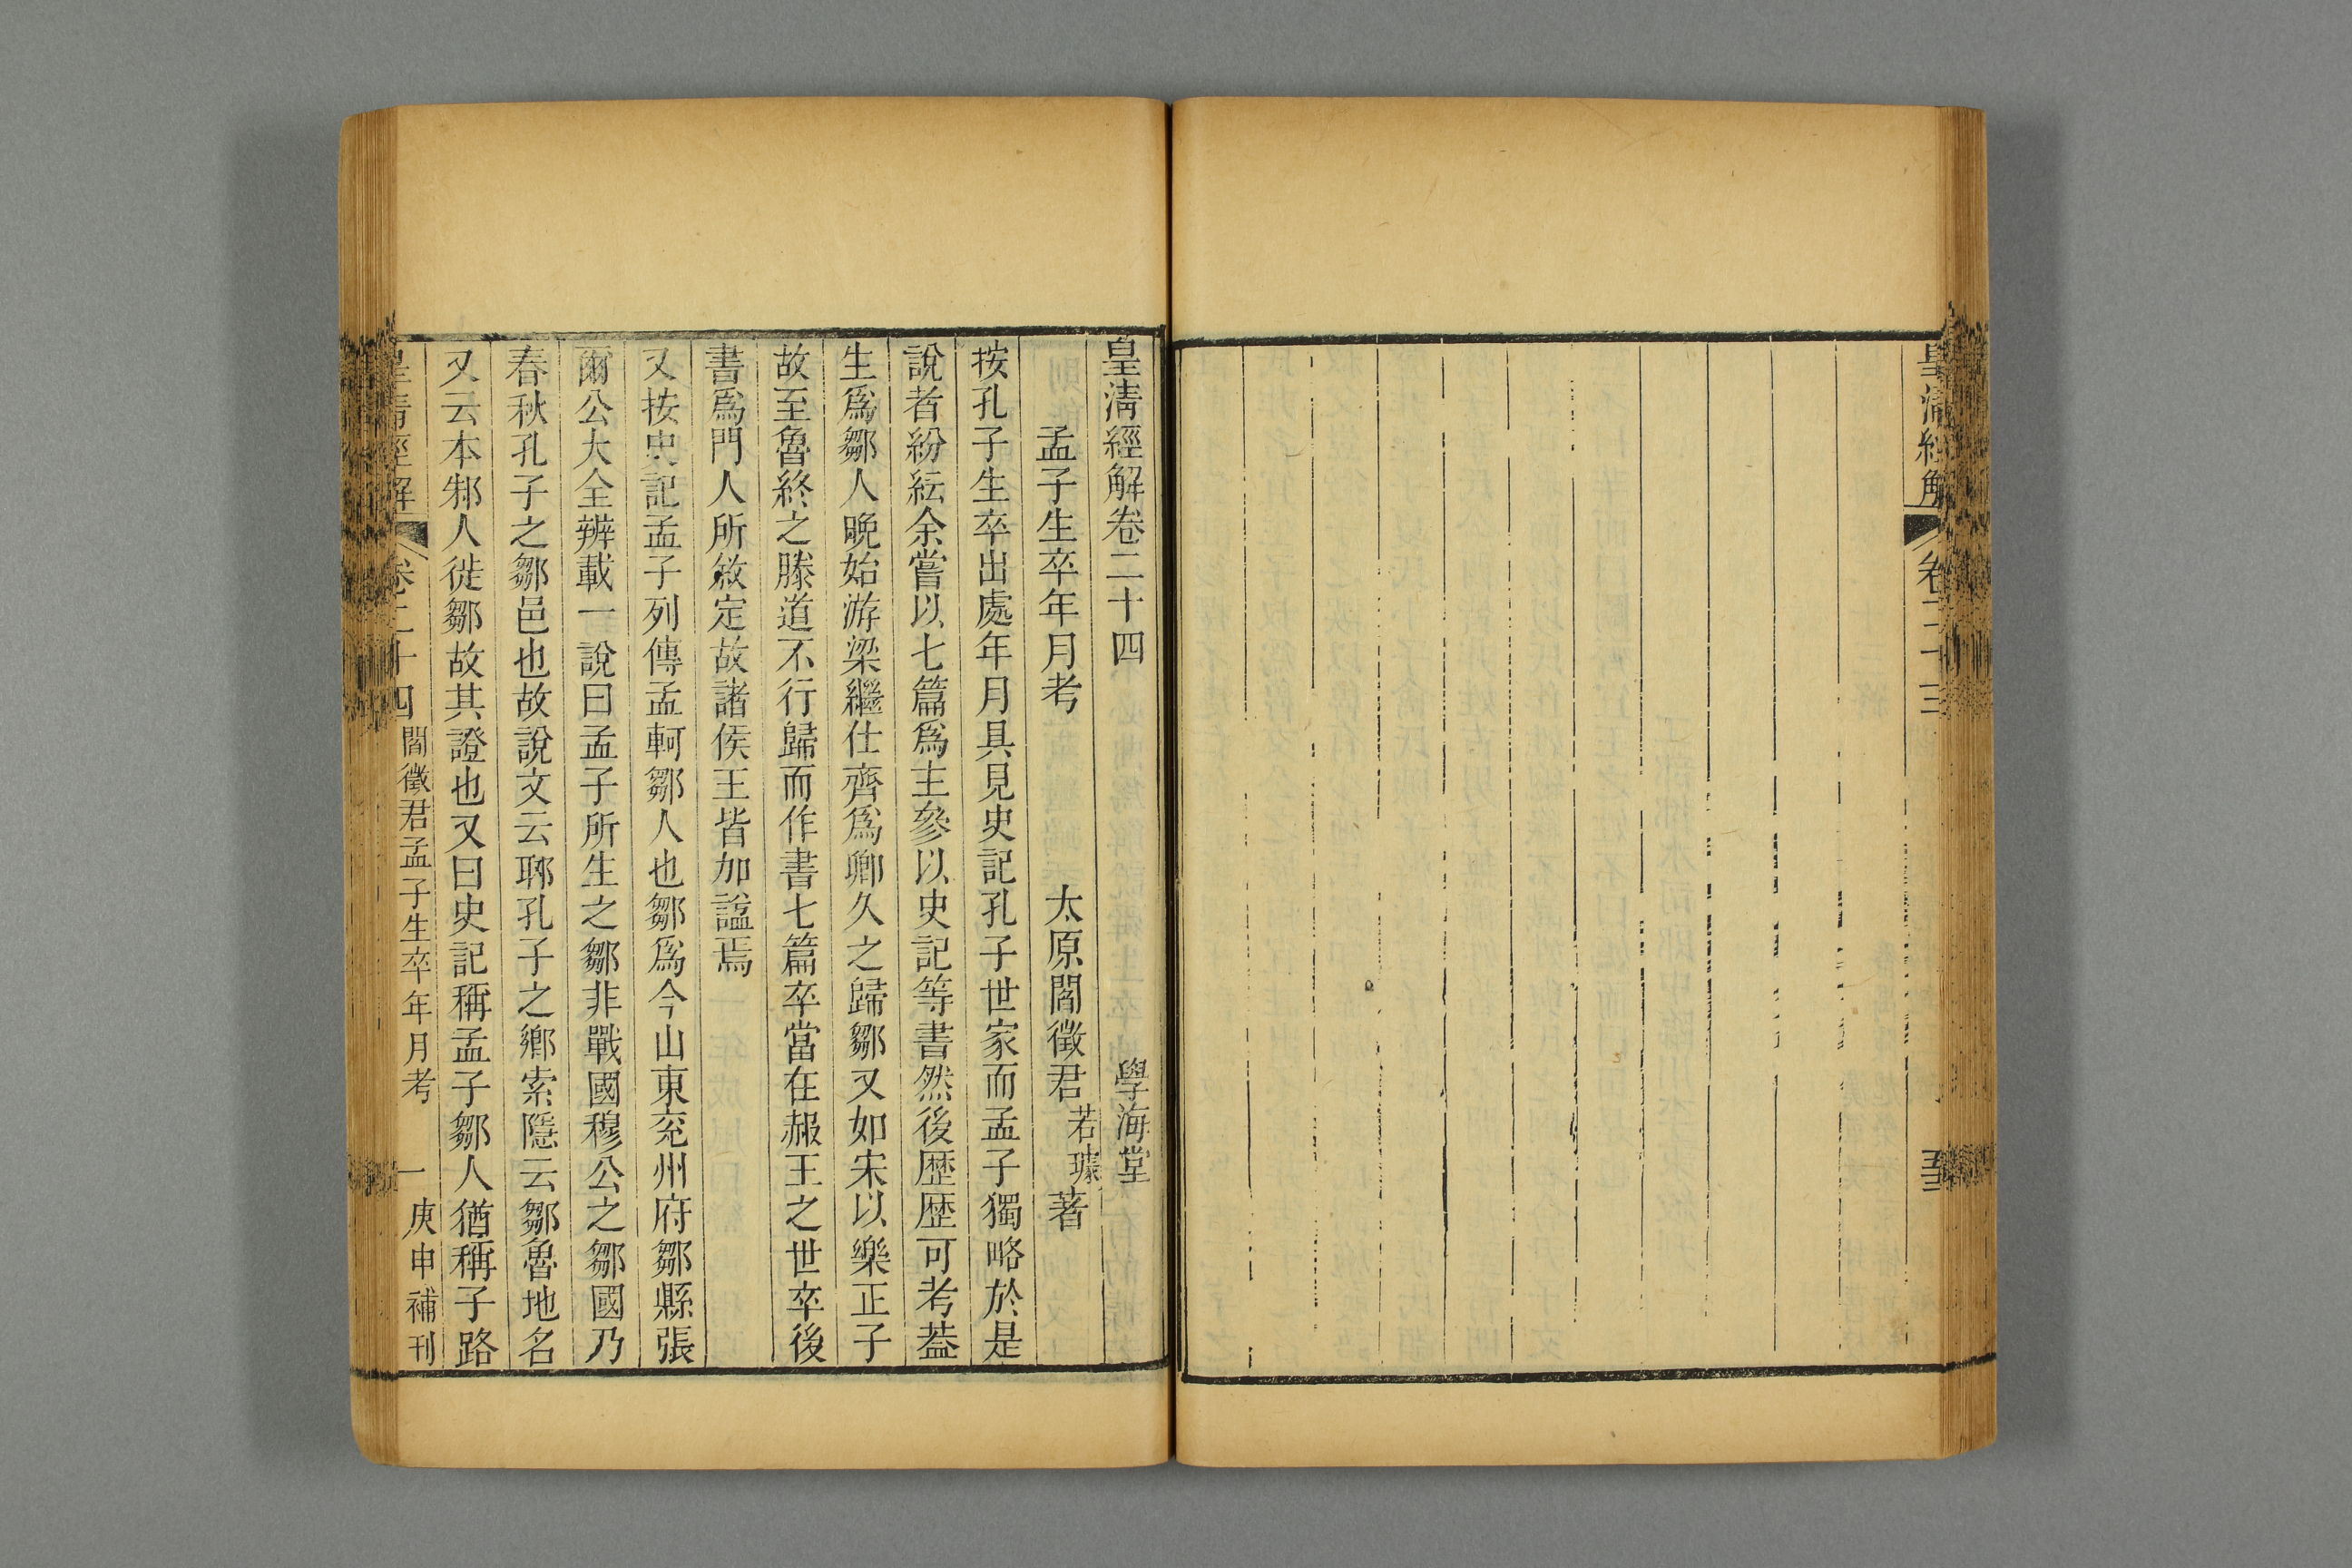 皇清經解 卷二十三
皇清經解卷二十四 學海堂
孟子生卒年月考 太原閻徵君若璩著
按孔子生卒出處年月具見史記孔子世家而孟子獨略於是
說者紛紜余嘗以七篇爲主參以史記等書然後歷歷可考葢
生爲鄒人晚始游梁繼仕齊爲卿久之歸鄒又如宋以樂正子
故至魯終之滕道不行歸而作書七篇卒當在赧王之世卒後
書爲門人所敘定故諸侯王皆加諡焉
又按史記孟子列傳孟軻鄒人也鄒爲今山東兖州府鄒縣張
爾公大全辨載一說曰孟子所生之鄒非戰國穆公之鄒國乃
春秋孔子之鄒邑也故說文云郰孔子之鄕索隱云鄒魯地名
又云本邾人徙鄒故其證也又曰史記稱孟子鄒人猶稱子路
皇清經解 卷二十四 閻徵君孟子生卒年月考 一 庚申補刊